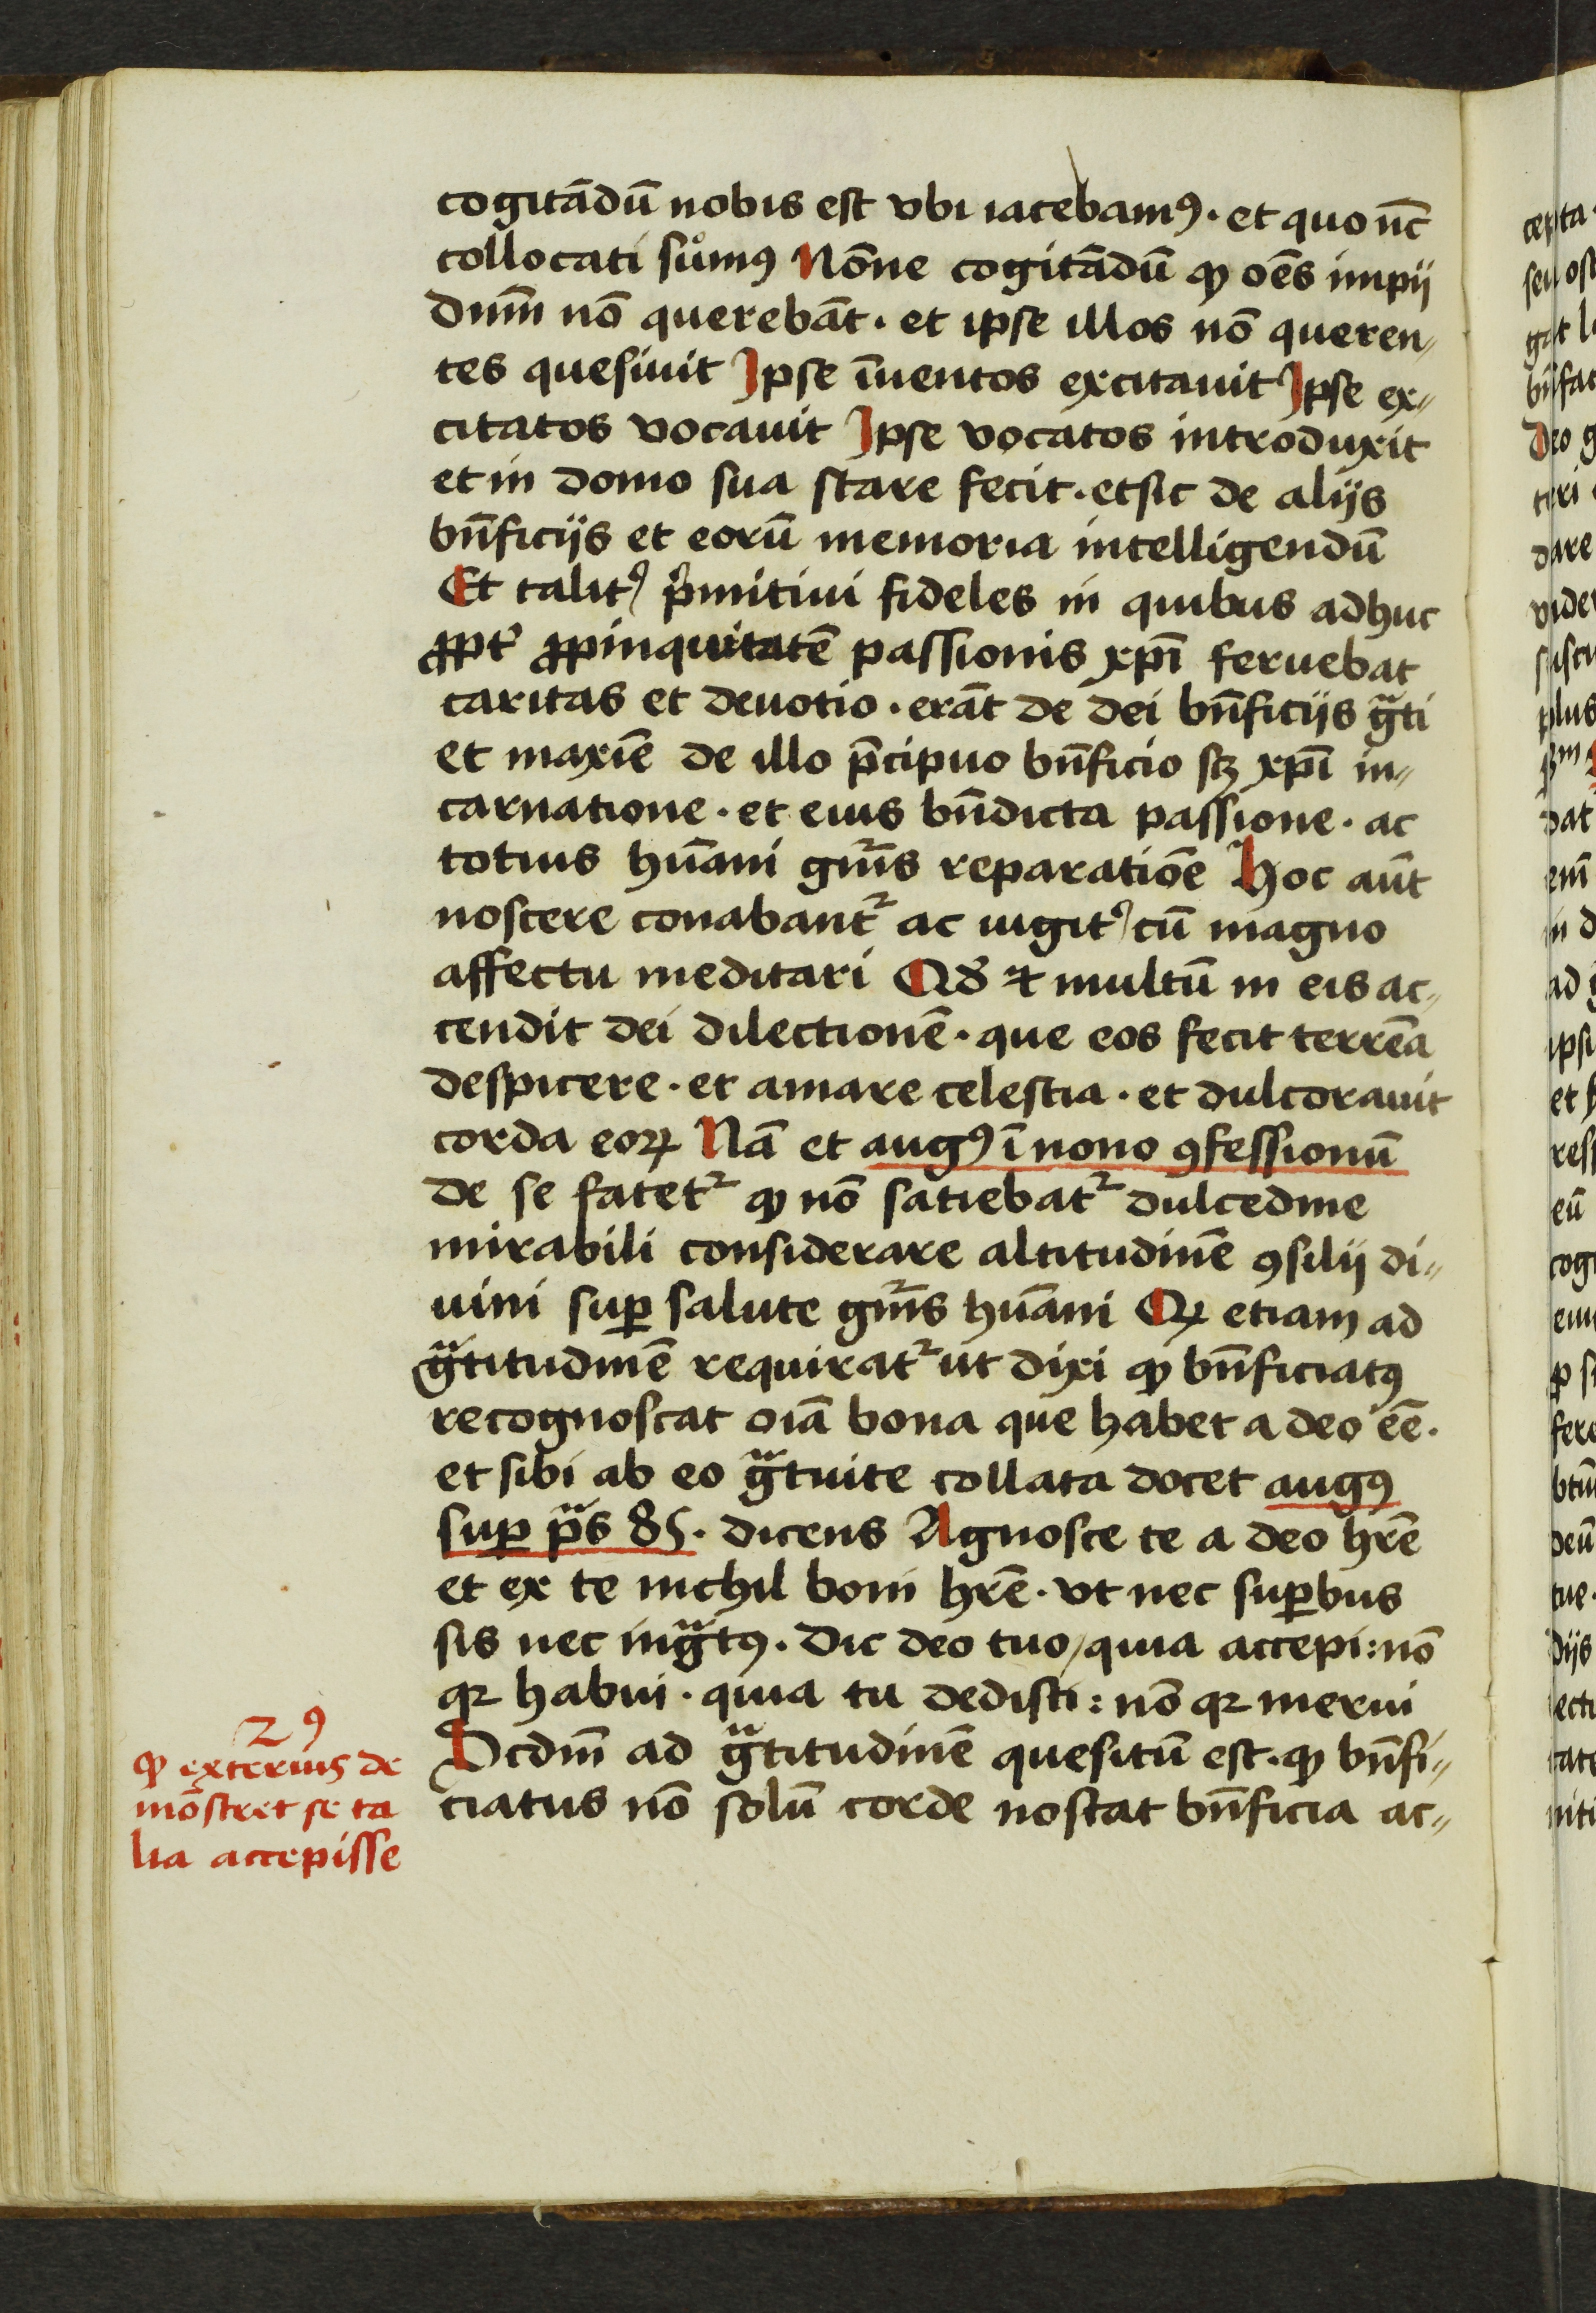 cogitādū nobis est vbi iacebamꝰ · et quo nūc
collocati sumꝰ Nōne cogitādū ꝙ oēs impij
dnm̄ nō querebāt · et ipse illos nō queren〃
tes quesiuit Ipse īuentos excitauit Ipse ex〃
citatos vocauit Ipse vocatos introduxit
et in domo sua stare fecit · et sic de alijs
bn̄ficijs et eorū memoria intelligendū
Et talitꝰ pͥmitiui fideles in quibus adhuc
ꝓpt̕ ꝓpinquitatē passionis xp̄i feruebat
caritas et deuotio · erāt de dei bn̄ficijs gᷓti
et maxīe de illo p̄cipuo bn̄ficio sꝫ xp̄i in〃
carnatione · et eius bn̄dicta passione · ac
totius hūani gn̄is reparatiōe Hoc aūt
noscere conabantᷣ ac iugitꝰ cū magno
affectu meditari Qd̕ ⁊ multū in eis ac〃
cendit dei dilectionē · que eos fecit terrēa
despicere · et amare celestia · et dulcorauit
corda eoꝝ Nā et augꝰ ī nono ꝯfessionū
de se fatetᷣ ꝙ nō satiebatᷣ dulcedine
mirabili considerare altitudinē ꝯsilij di〃
uini suꝑ salute gn̄is hūani Qꝝ etiam ad
gᷓtitudinē requiratᷣ ut dixi ꝙ bn̄ficiatꝰ
recognoscat oīa bona que habet a deo eē ·
et sibi ab eo gᷓtuite collata docet augꝰ
suꝑ pᷓs 85 · dicens Agnosce te a deo hr̄e
et ex te nichil boni hr̄e · vt nec suꝑbus
sis nec ingᷓtꝰ · Dic deo tuo / quia accepi : nō
qꝛ habui · quia tu dedisti : nō qꝛ merui
Scdm̄ ad gᷓtitudinē quesitū est · ꝙ bn̄fi〃
ciatus nō solū corde noscat bn̄ficia ac〃
2ꝰ
ꝙ exterius de
mōstret se ta
lia accepisse